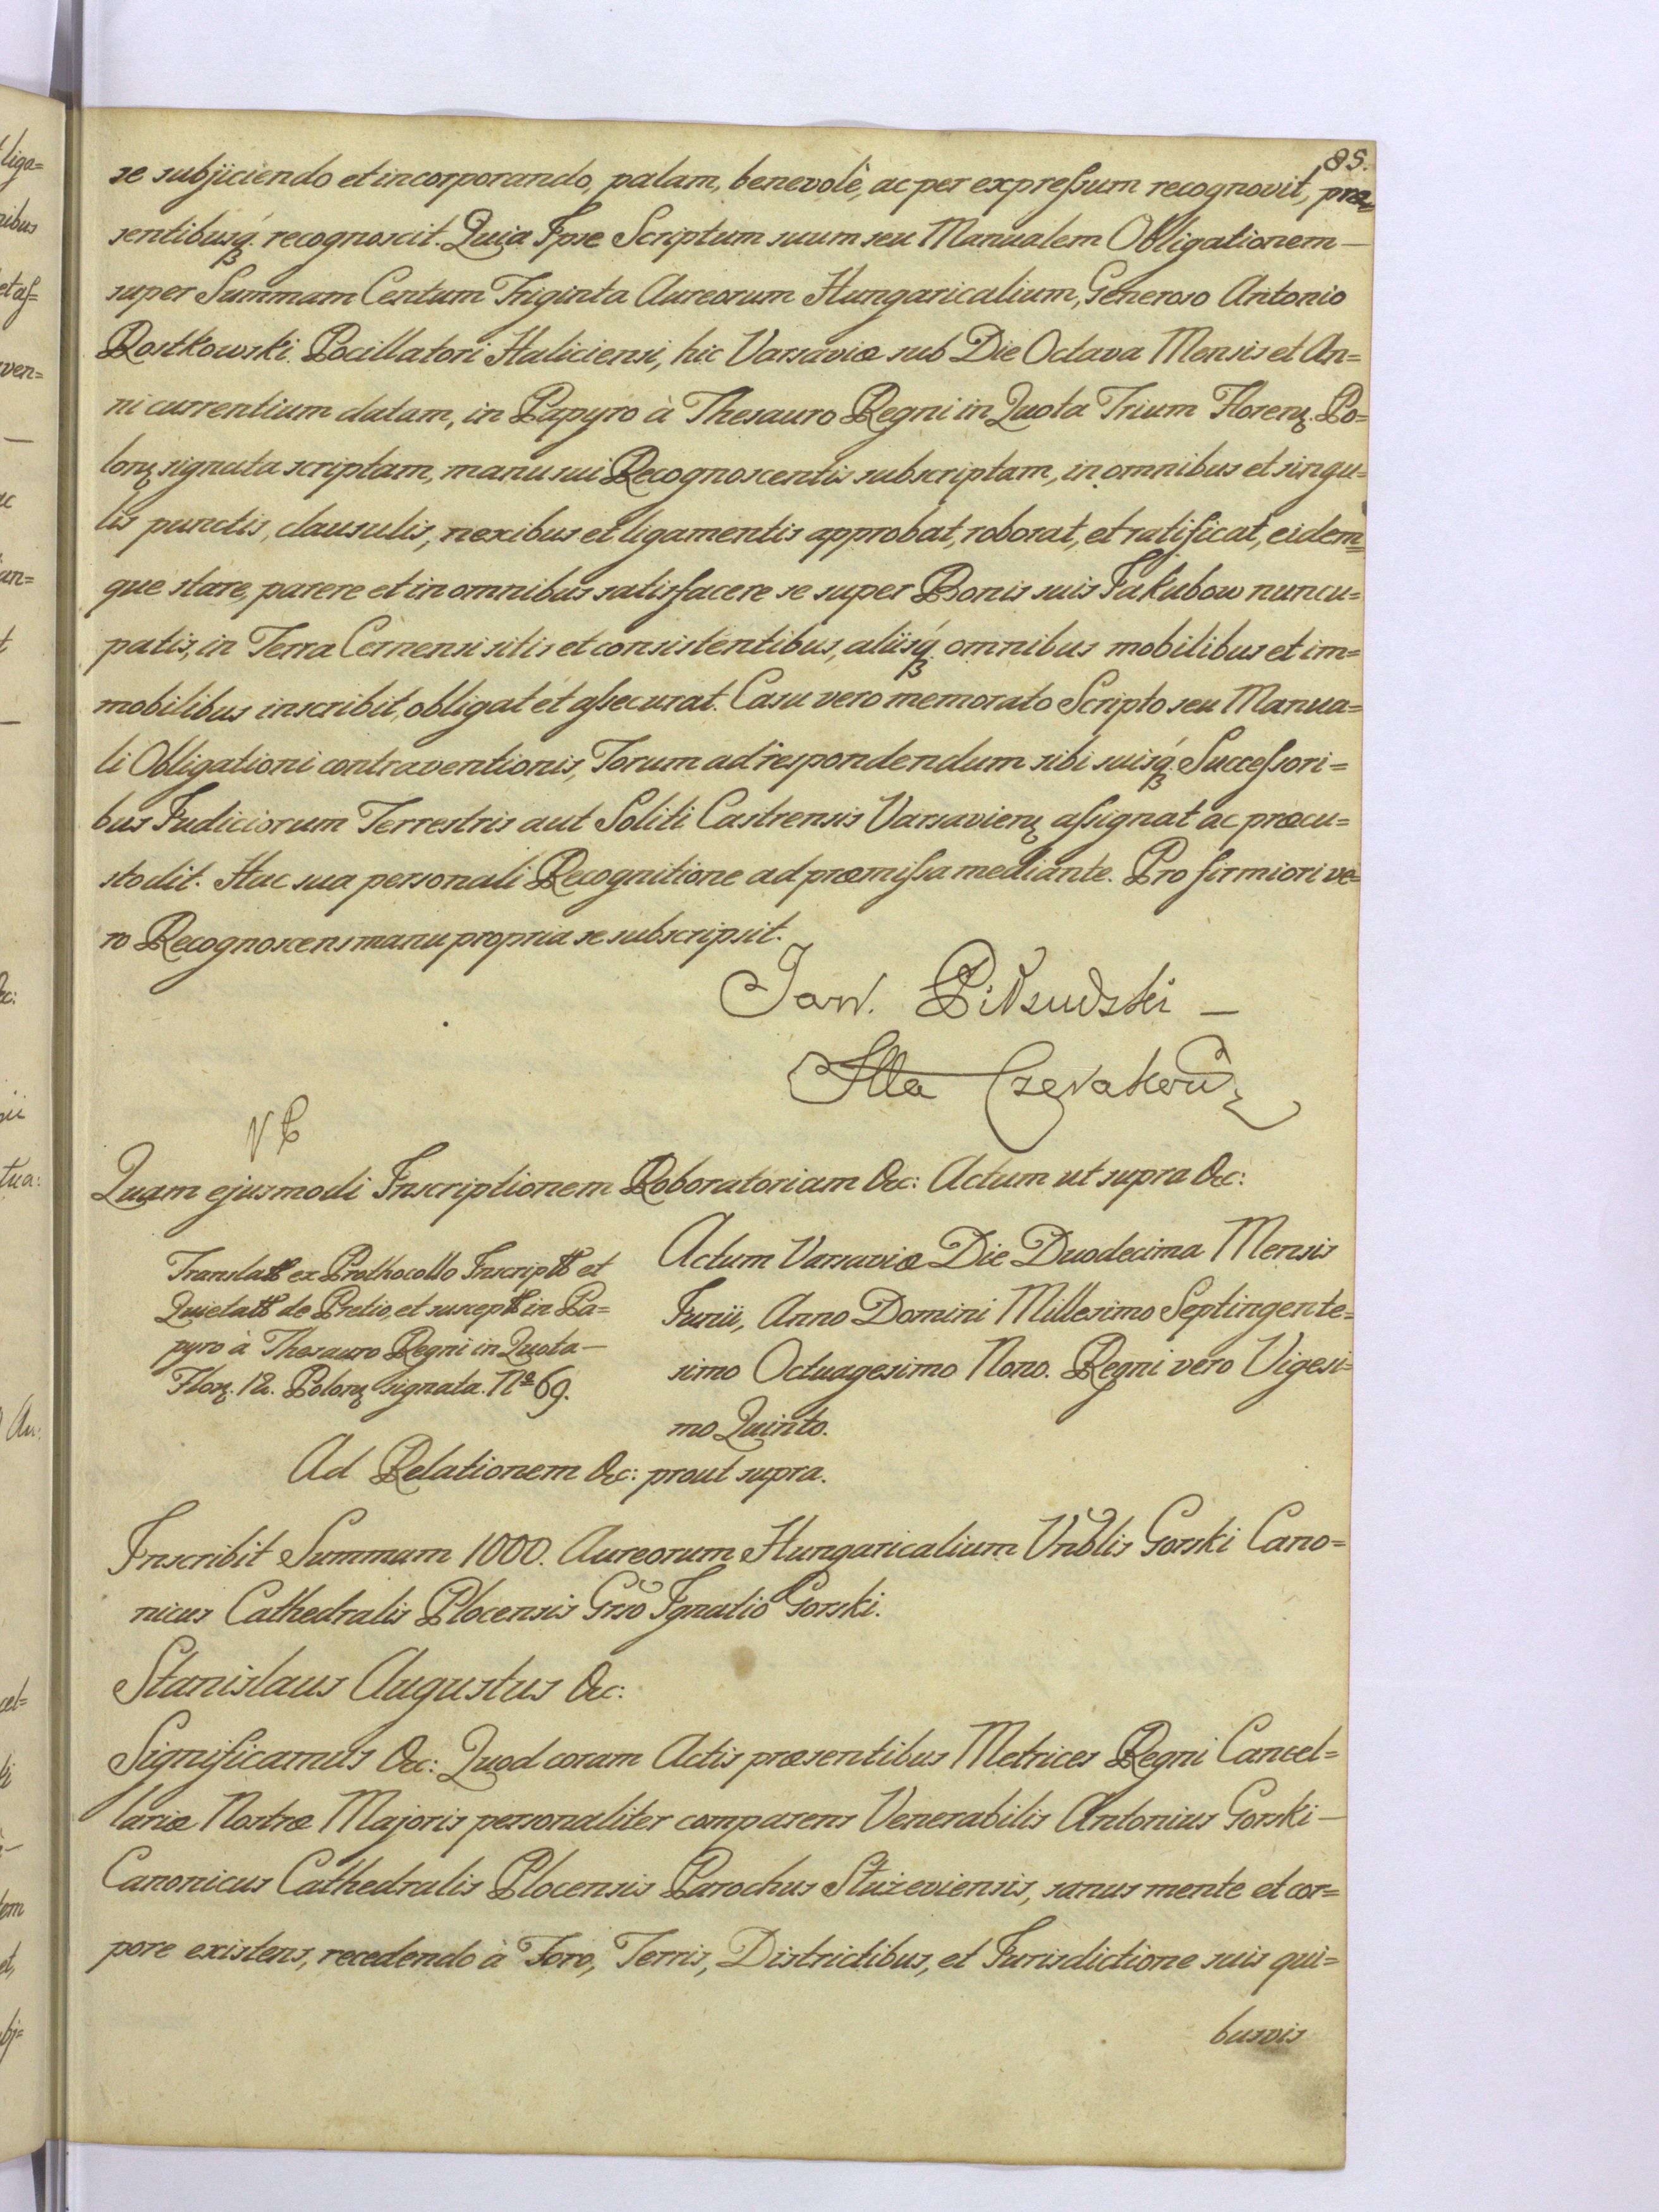 85.
se subjiciendo et incorporando, palam, benevolè, ac per expressum recognovit, præ=
sentibusq́; recognoscit. Quia Ipse Scriptum suum seu Manualem Obligationem —
super Summam Centum Triginta Aureorum Hungaricalium, Generoso Antonio
Rostkowski Pocillatori Haliciensi, hic Varsaviæ sub Die Octava Mensis et An=
ni currentium datam, in Papyro à Thesauro Regni in Quota Trium Florenꝝ. Po=
lonꝝ signata scriptam, manu sui Recognoscentis subscriptam, in omnibus et singu=
lis punctis, clausulis, nexibus et ligamentis approbat, roborat, et ratificat, eidem=
que stare, parere et in omnibus satisfacere se super Bonis suis Jakubow nuncu=
patis, in Terra Cernensi sitis et consistentibus, aliisq́; omnibus mobilibus et im=
mobilibus inscribit, obligat et assecurat. Casu vero memorato Scripto seu Manua=
li Obligationi contraventionis, Forum ad respondendum sibi suisq́; Successori=
bus Judiciorum Terrestris aut Soliti Castrensis Varsavienꝝ assignat ac præcu=
stodit. Hac sua personali Recognitione ad præmissa mediante. Pro firmiori ve=
ro Recognoscens manu propria se subscripsit.
Jan. Piłsudski —
Quam ejusmodi Inscriptionem Roboratoriam &c: Actum ut supra &c:
Actum Varsaviæ Die Duodecima Mensis
Junii, Anno Domini Millesimo Septingente=
simo Octuagesimo Nono. Regni vero Vigesi=
mo Quinto.
Translatt ex Prothocollo Inscriptt et
Quietatt de Pretio, et susceptt in Pa=
pyro à Thesauro Regni in Quota —
Florꝝ. 12. Polonꝝ signata. Nº 69.
Ad Relationem &c: prout supra.
Inscribit Summam 1000. Aureorum Hungaricalium Vnblis Gorski Cano=
nicus Cathedralis Plocensis Grso Ignatio Gorski.
Stanislaus Augustus &c:
Significamus &c: Quod coram Actis præsentibus Metrices Regni Cancel=
lariæ Nostræ Majoris personaliter comparens Venerabilis Antonius Gorski —
Canonicus Cathedralis Plocensis Parochus Stużeviensis, sanus mente et cor=
pore existens, recedendo à Foro, Terris, Districtibus, et Jurisdictione suis qui=
busvis